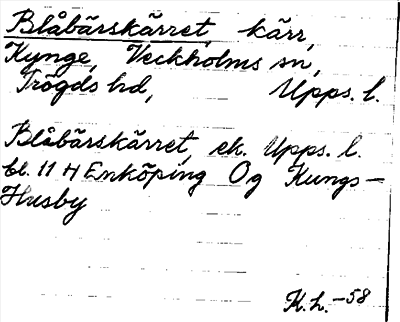 Blåbärskärret, kärr,
Kynge, Veckholms sn,
Trögds hd, Upps. l.
Blåbärskärret, ek. Upps. l.
bl. 11 H Enköping Og Kungs-
Husby
K. L. -58